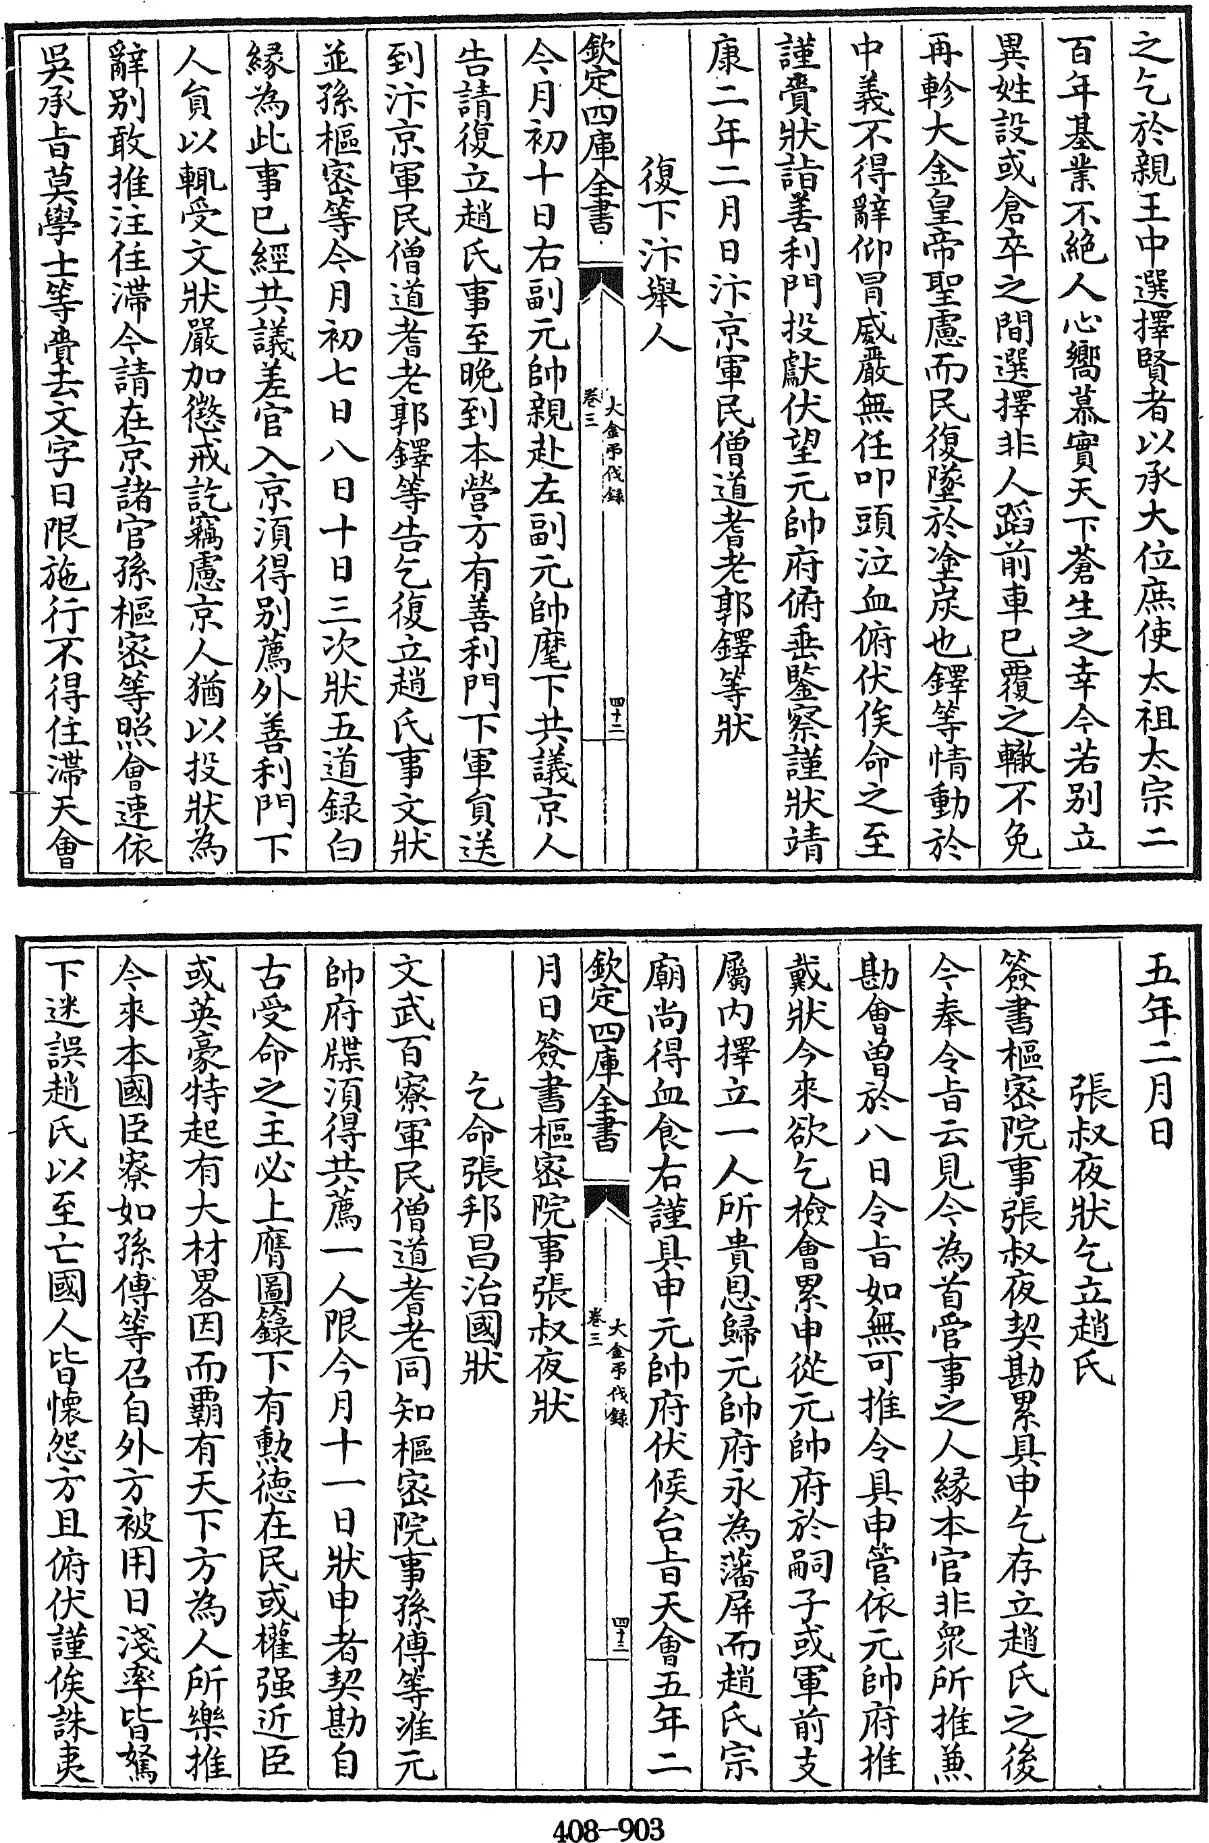 之乞於親王中選擇賢者以承大位庶使太祖太宗二
百年基業不絶人心嚮慕實天下蒼生之幸今若别立
異姓設或倉卒之間選擇非人蹈前車已覆之轍不免
再軫大金皇帝聖慮而民復墜於塗炭也鐸等情動於
中義不得辭仰冒威嚴無任叩頭泣血俯伏俟命之至
謹賫狀詣善利門投獻伏望元帥府俯垂鑒察謹狀靖
康二年二月日汴京軍民僧道耆老郭鐸等狀
復下汴舉人
欽定四庫全書
大金弔伐錄
卷三
四十二
今月初十日右副元帥親赴左副元帥麾下共議京人
告請復立趙氏事至晚到本營方有善利門下軍員送
到汴京軍民僧道耆老郭鐸等告乞復立趙氏事文狀
並孫樞密等今月初七日八日十日三次狀五道録白
緣為此事已經共議差官入京須得别薦外善利門下
人員以輒受文狀嚴加懲戒訖竊慮京人猶以投狀為
辭别敢推注住滯今請在京諸官孫樞密等照會連依
吳承旨莫學士等賫去文字日限施行不得住滯天會
五年二月日
張叔夜狀乞立趙氏
簽書樞密院事張叔夜契勘累具申乞存立趙氏之後
今奉令旨云見今為首管事之人緣本官非衆所推兼
勘會曽於八日令旨如無可推令具申管依元帥府推
戴狀今來欲乞檢會累申從元帥府於嗣子或軍前支
屬内擇立一人所貴恩歸元帥府永為藩屏而趙氏宗
廟尚得血食右謹具申元帥府伏候台旨天會五年二
欽定四庫全書
大金弔伐錄
卷三
四十三
月日簽書樞密院事張叔夜狀
乞命張邦昌治國狀
文武百寮軍民僧道耆老同知樞密院事孫傅等准元
帥府牒須得共薦一人限今月十一日狀申者契勘自
古受命之主必上膺圖籙下有勲徳在民或權强近臣
或英豪特起有大材畧因而覇有天下方為人所樂推
今來本國臣寮如孫傅等召自外方被用日淺率皆駑
下迷誤趙氏以至亡國人皆懷怨方且俯伏謹俟誅夷
408-903